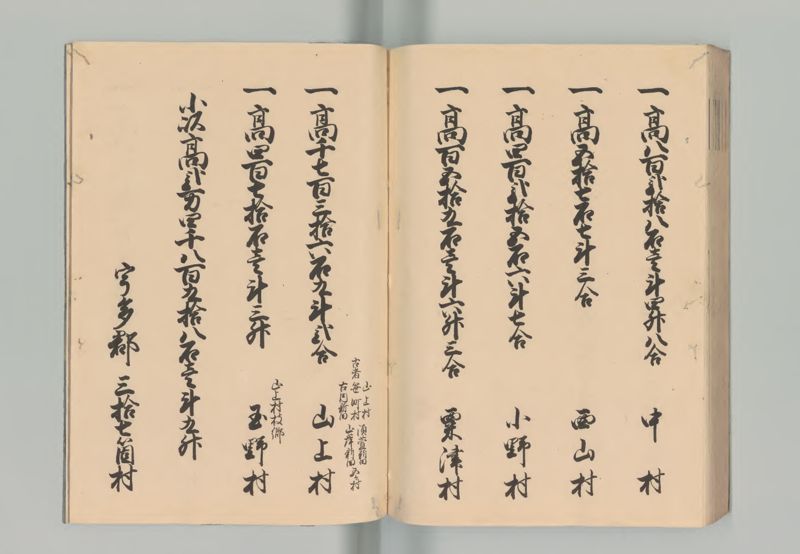 一高八百弐拾八石壱斗四舛八合 中村
一高五拾七石七斗三合 西山村
一高四百弐拾五石六斗七合 小野村
一高百五拾五石壱斗六舛三合 粟津村
一高千七百三拾六石九斗弐合 山上村
山上村
古者 笹町村
一高四百七拾石壱斗三舛 玉野村
山上村枝郷
小以高弐万四千八百五拾八石壱斗九舛
宇多郡 三拾七箇村